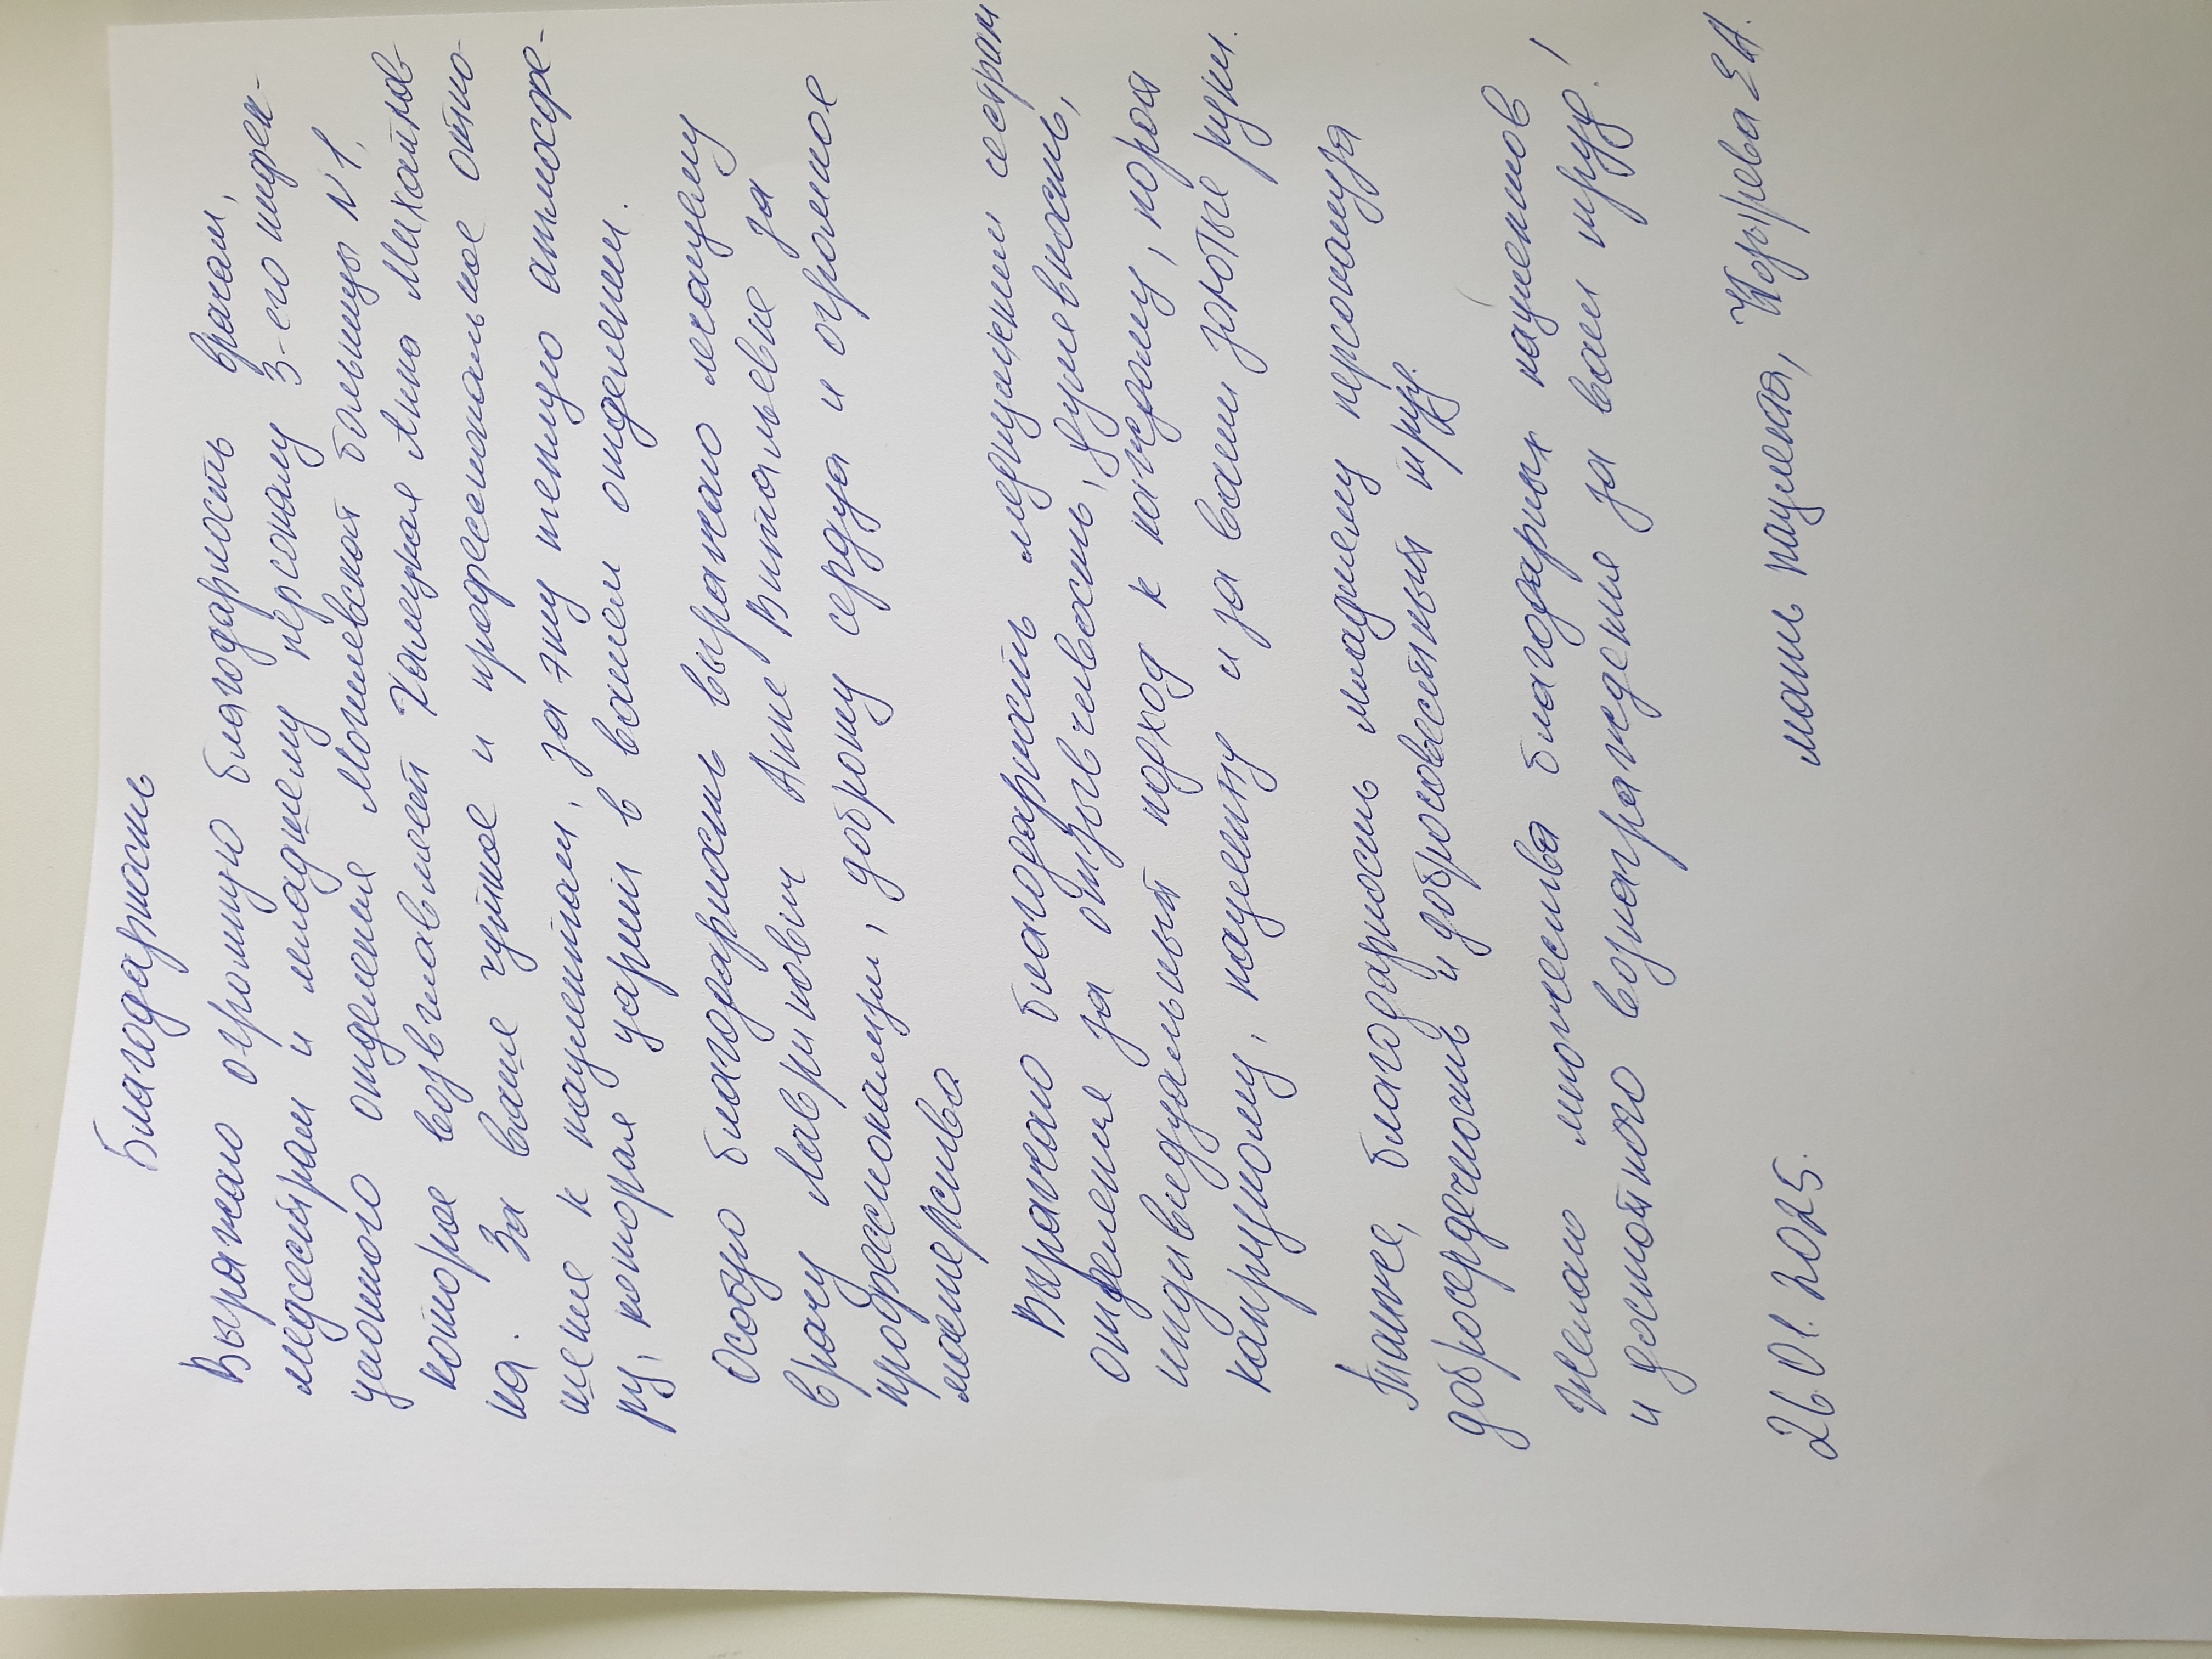 Благодарность
Выражаю огромную благодарность врачам,
медсестрам и младшему персоналу 3-его инфек-
ционного отделения Могилевской больницы №1,
которое возглавляет Халецкая Алла Михайлов
на. За ваше чуткое и профессиональное отно-
шение к пациентам, за эту теплую атмосфе-
ру, которая царит в вашем отделении.
Особую благодарность выражаю лечащему
врачу Лавринович Анне Витальевне за
профессионализм, доброту сердца и огромное
мастерство
Выражаю благодарность медицинским сестрам
отделения за отзывчивость, душевность,
индивидуальный подход к каждому, порой
капризному, пациенту и за ваши золотые руки.
Также, благодарность младшему персоналу за
добросердечность и добросовестный труд.
Желаю множества благодарных пациентов
и достойного вознаграждения за ваш труд!
26.01.2025. мать пациента, Е.А.